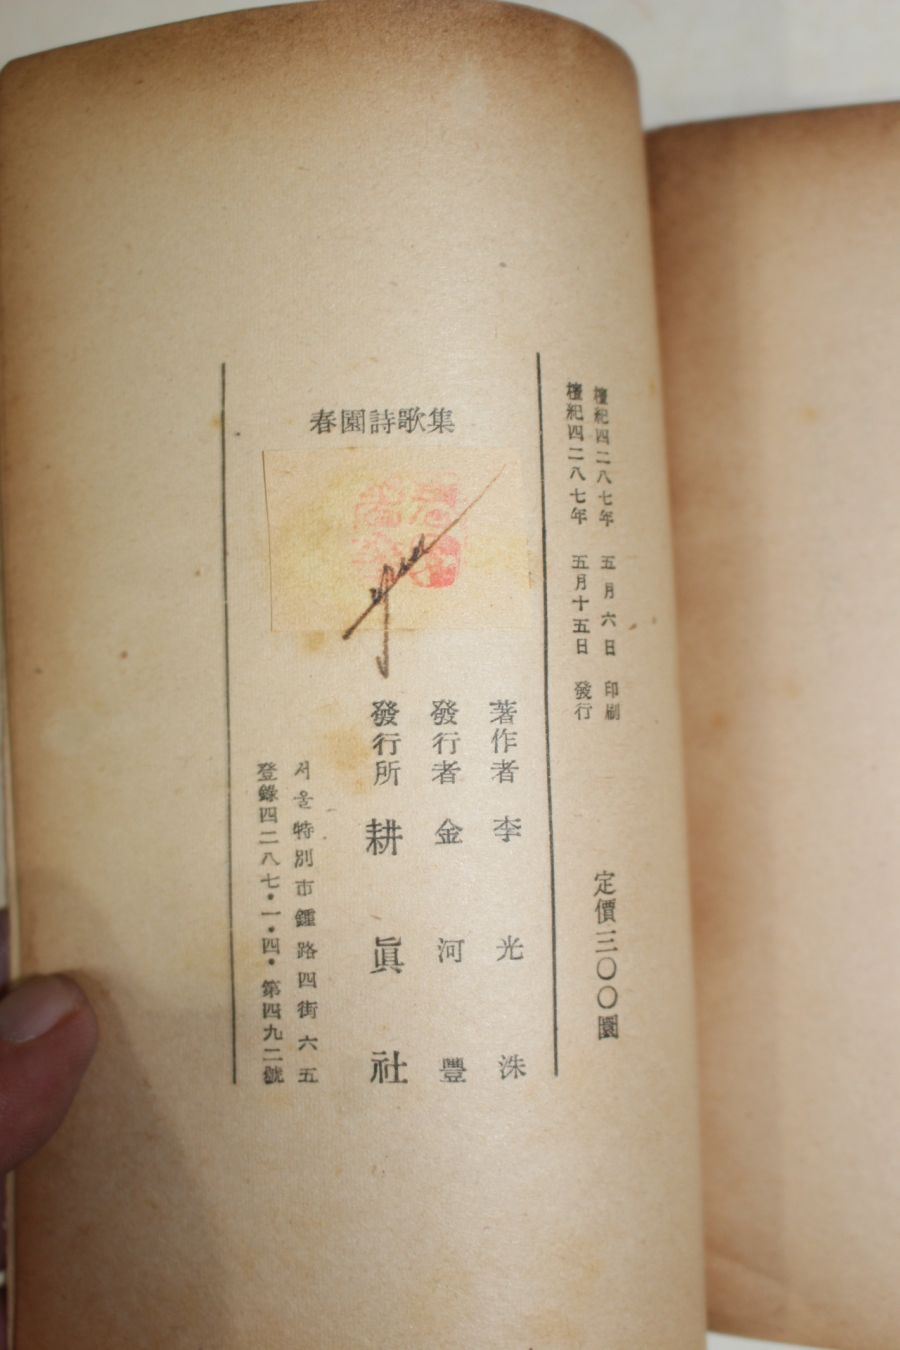 檀紀四二八七年 五月六日 印刷
檀紀四二八七年 五月十五日 發行
定價三〇〇圜
春園詩歌集
著作者 李光洙
發行者 金河豐
發行所 耕眞社
서울特別市鍾路四街六五
登錄四二八七・一・四・第四九二號